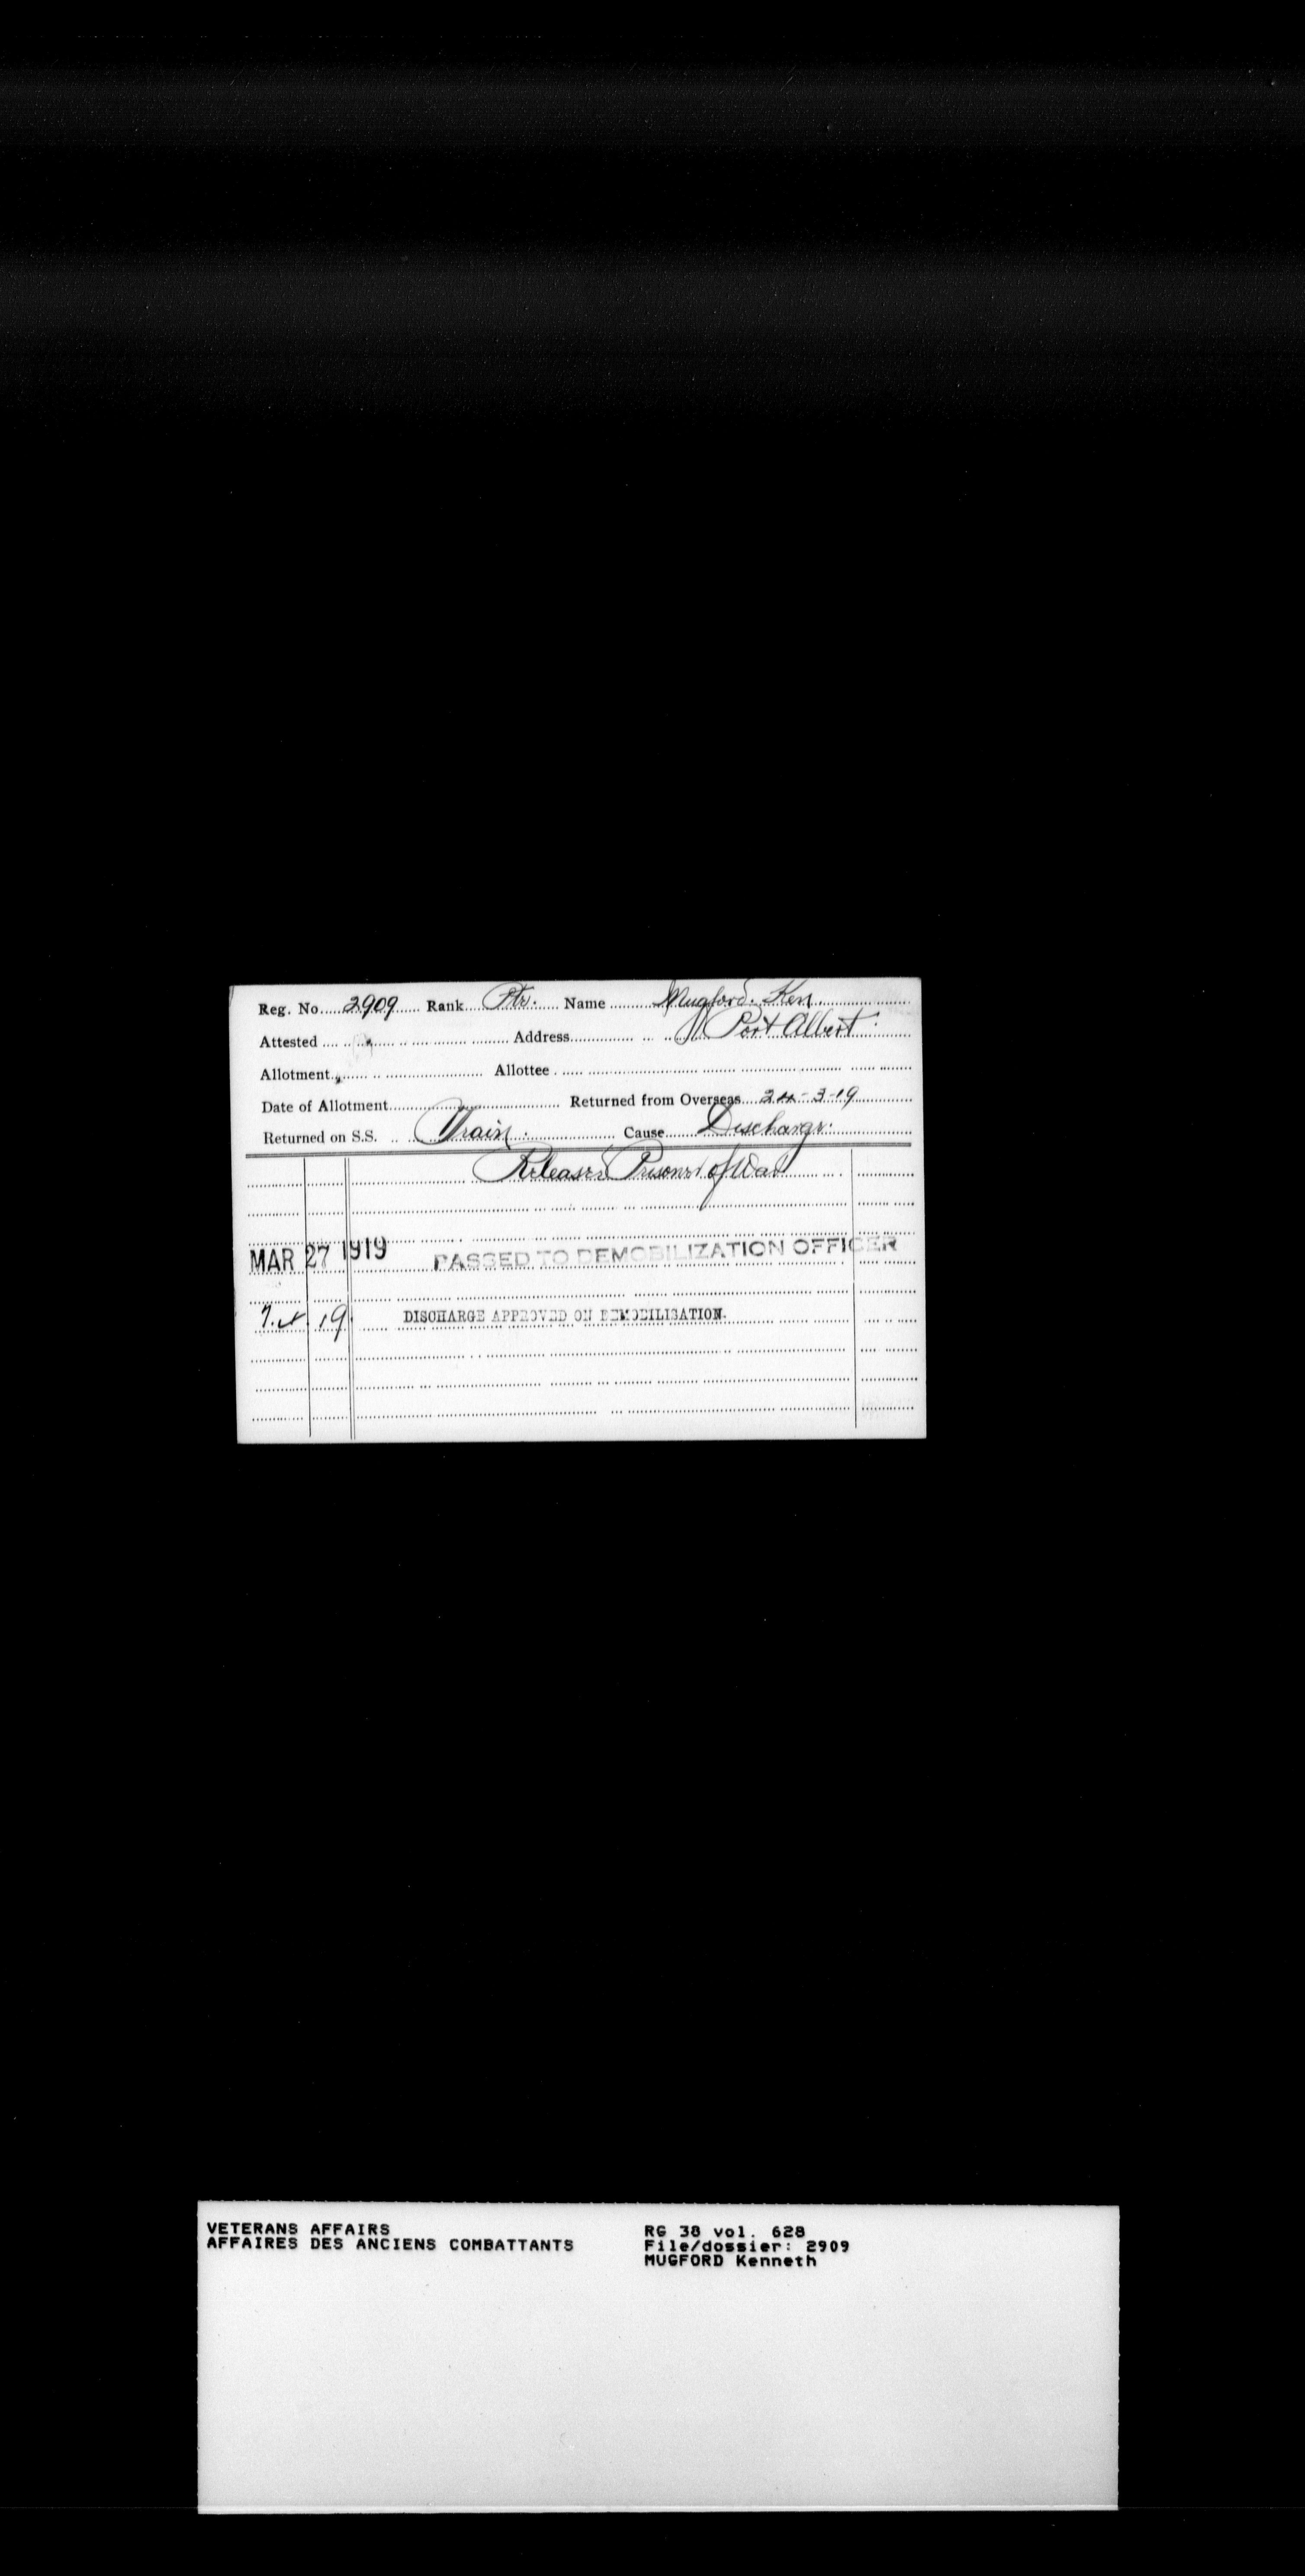 Reg. No. 2909 Rank Pte. Name Mugford. Ken.
Attested Address Port Albert.
Allotment Allottee
Date of Allotment Returned from Overseas 24-3-19
Returned on S.S. Cause Discharge.
Released Prisoner of War
MAR 27 1919 PASSED TO DEMOBILIZATION OFFICER
7.4.19. DISCHARGE APPROVED ON DEMOBILISATION.
VETERANS AFFAIRS
AFFAIRES DES ANCIENS COMBATTANTS
RG 38 vol. 628
File/dossier: 2909
MUGFORD Kenneth